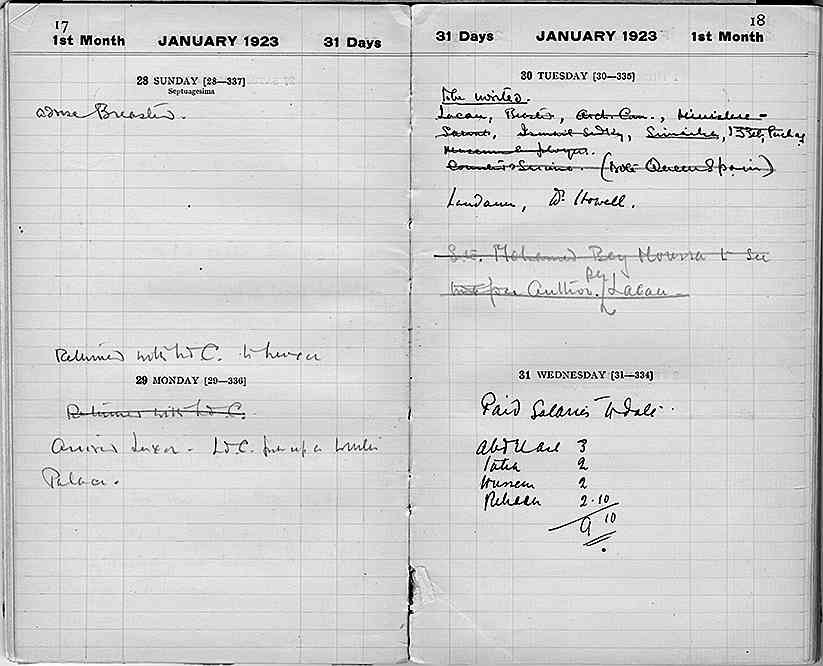 17
1st Month JANUARY 1923 31 Days
28 SUNDAY [28—337]
Septuagesima
Breasted.
Returned with Ld C. to Luxor
29 MONDAY [29—336]
Returned with Ld C.
Arrived Luxor. Ld. C. put up a Winter
Palace.
18
31 Days JANUARY 1923 1st Month
30 TUESDAY [30—335]
To be invited.
Lacau, Breasted, Arch. Com., Ministere -
Ismail Sidky,
(Queen Spain)
Dr Howell.
S.E. Mohamed Bey Moussa to see
per Author. by Lacau
31 WEDNESDAY [31—334]
Paid Salaries to date.
Abd El Aal 3
2
Hussein 2
2.10
9 10